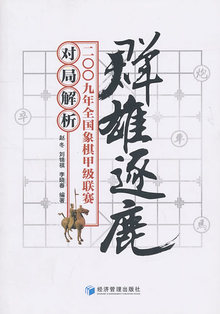 群雄逐鹿
二〇〇九年全国象棋甲级联赛
对局解析
赵冬 刘锦祺 李晓春 编著
经济管理出版社